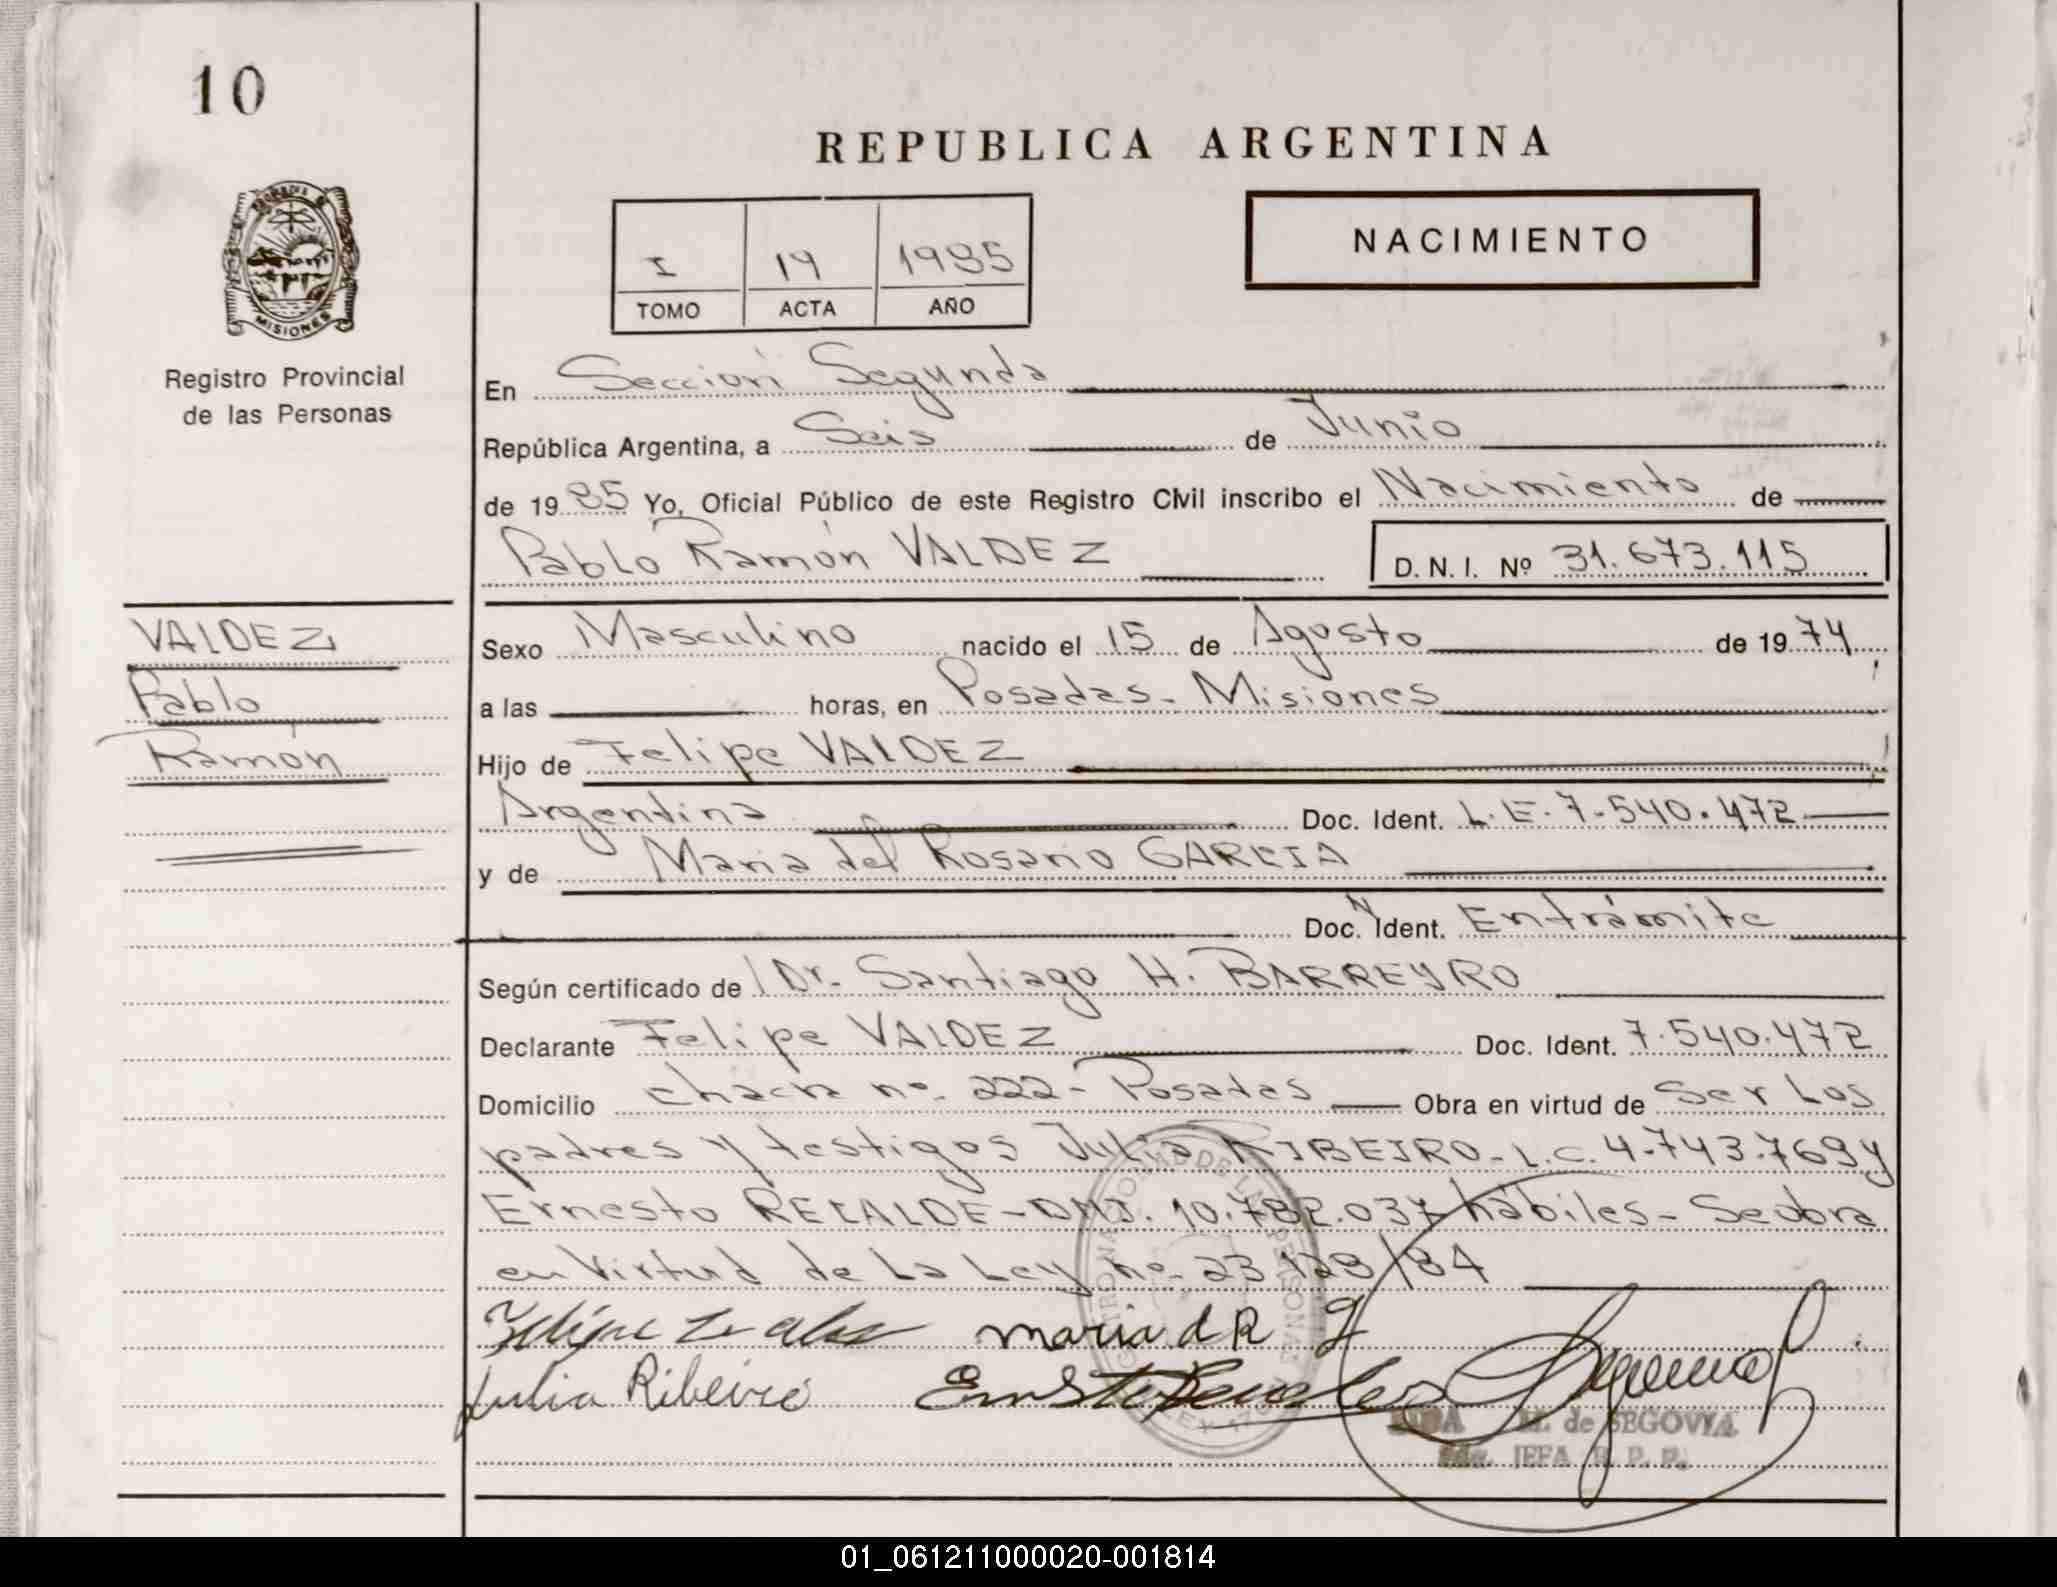 10
REPUBLICA ARGENTINA
NACIMIENTO
I 19 1985
TOMO ACTA AÑO
MISIONES
Registro Provincial
de las Personas
En Sección Segunda
República Argentina, a Seis de Junio
de 1985 Yo, Oficial Público de este Registro Civil inscribo el Nacimiento de
Pablo Ramón VALDEZ D. N. I. Nº 31.673.115
VALDEZ
Pablo
Ramón
Sexo Masculino nacido el 15 de Agosto de 1974
a las horas, en Posadas - Misiones
Hijo de Felipe VALDEZ
Argentina Doc. Ident. L.E. 7.540.472
y de Maria del Rosario GARCIA
Doc. Ident. Entrámite
Según certificado de Dr. Santiago H. BARREYRO
Declarante Felipe VALDEZ Doc. Ident. 7.540.472
Domicilio chacra nº. 222 - Posadas Obra en virtud de Ser Los
padres y testigos Julia RIBEIRO - L.C. 4.743.769 y
Ernesto RECALDE - DNI. 10.782.037 hábiles - Se obra
en Virtud de La Ley nº. 23.128/84
maria d R G
Julia Ribeiro
M. de SEGOVIA
JEFA R. P. P.
01_061211000020-001814